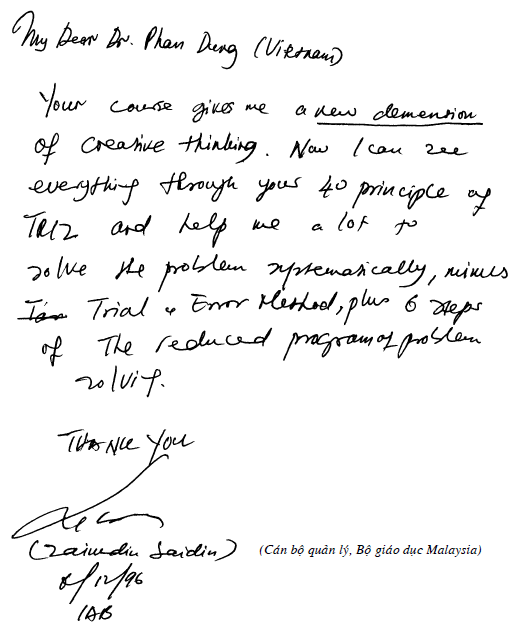 My Dear Dr. Phan Dung (Vietnam)
Your course gives me a new demension
of creative thinking. Now I can see
everything through your 40 principle of
TRIZ and help me a lot to
solve the problem systematically, minus
Trial & Error Method, plus 6 steps
of The reduced program of problem
solving.
THANK YOU
(Zainudin Saidin) (Cán bộ quản lý, Bộ giáo dục Malaysia)
/12/96
IAB